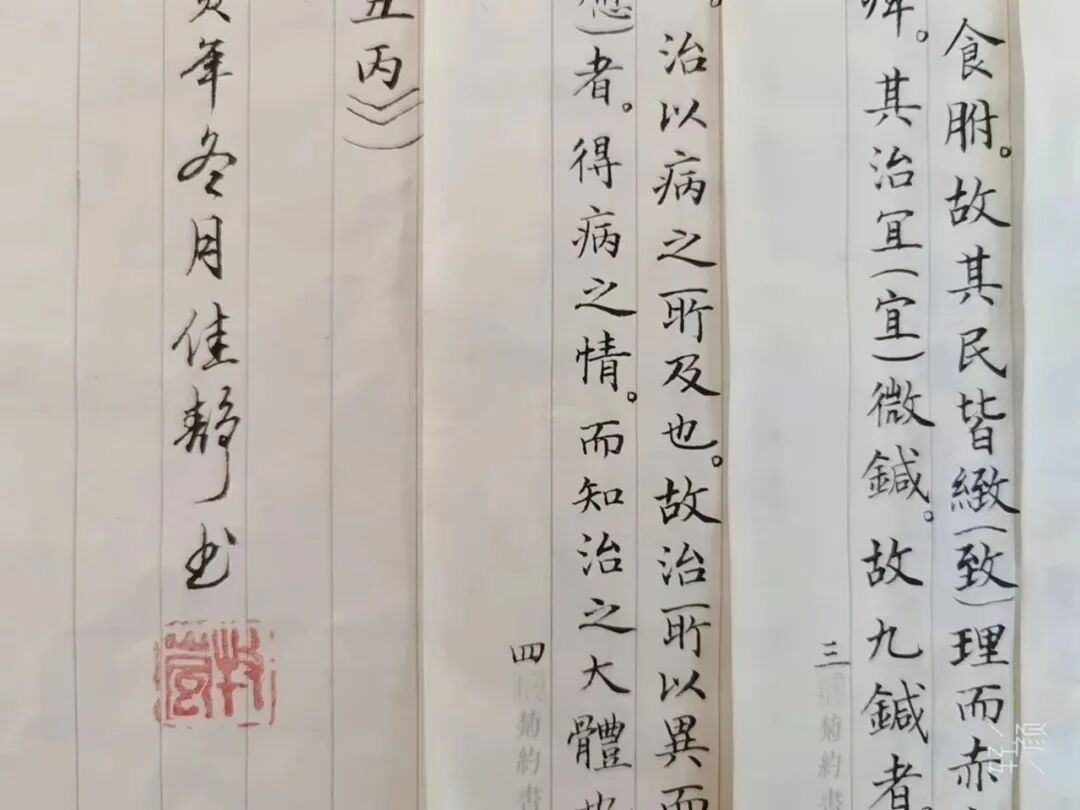 食胕。故其民皆緻(致)理而赤
其治冝(宜)微鍼。故九鍼者。
三
菊約書
治以病之所及也。故治所以異而
應)者。得病之情。而知治之大體也
四
菊約書
五丙》)
年冬月佳靜书